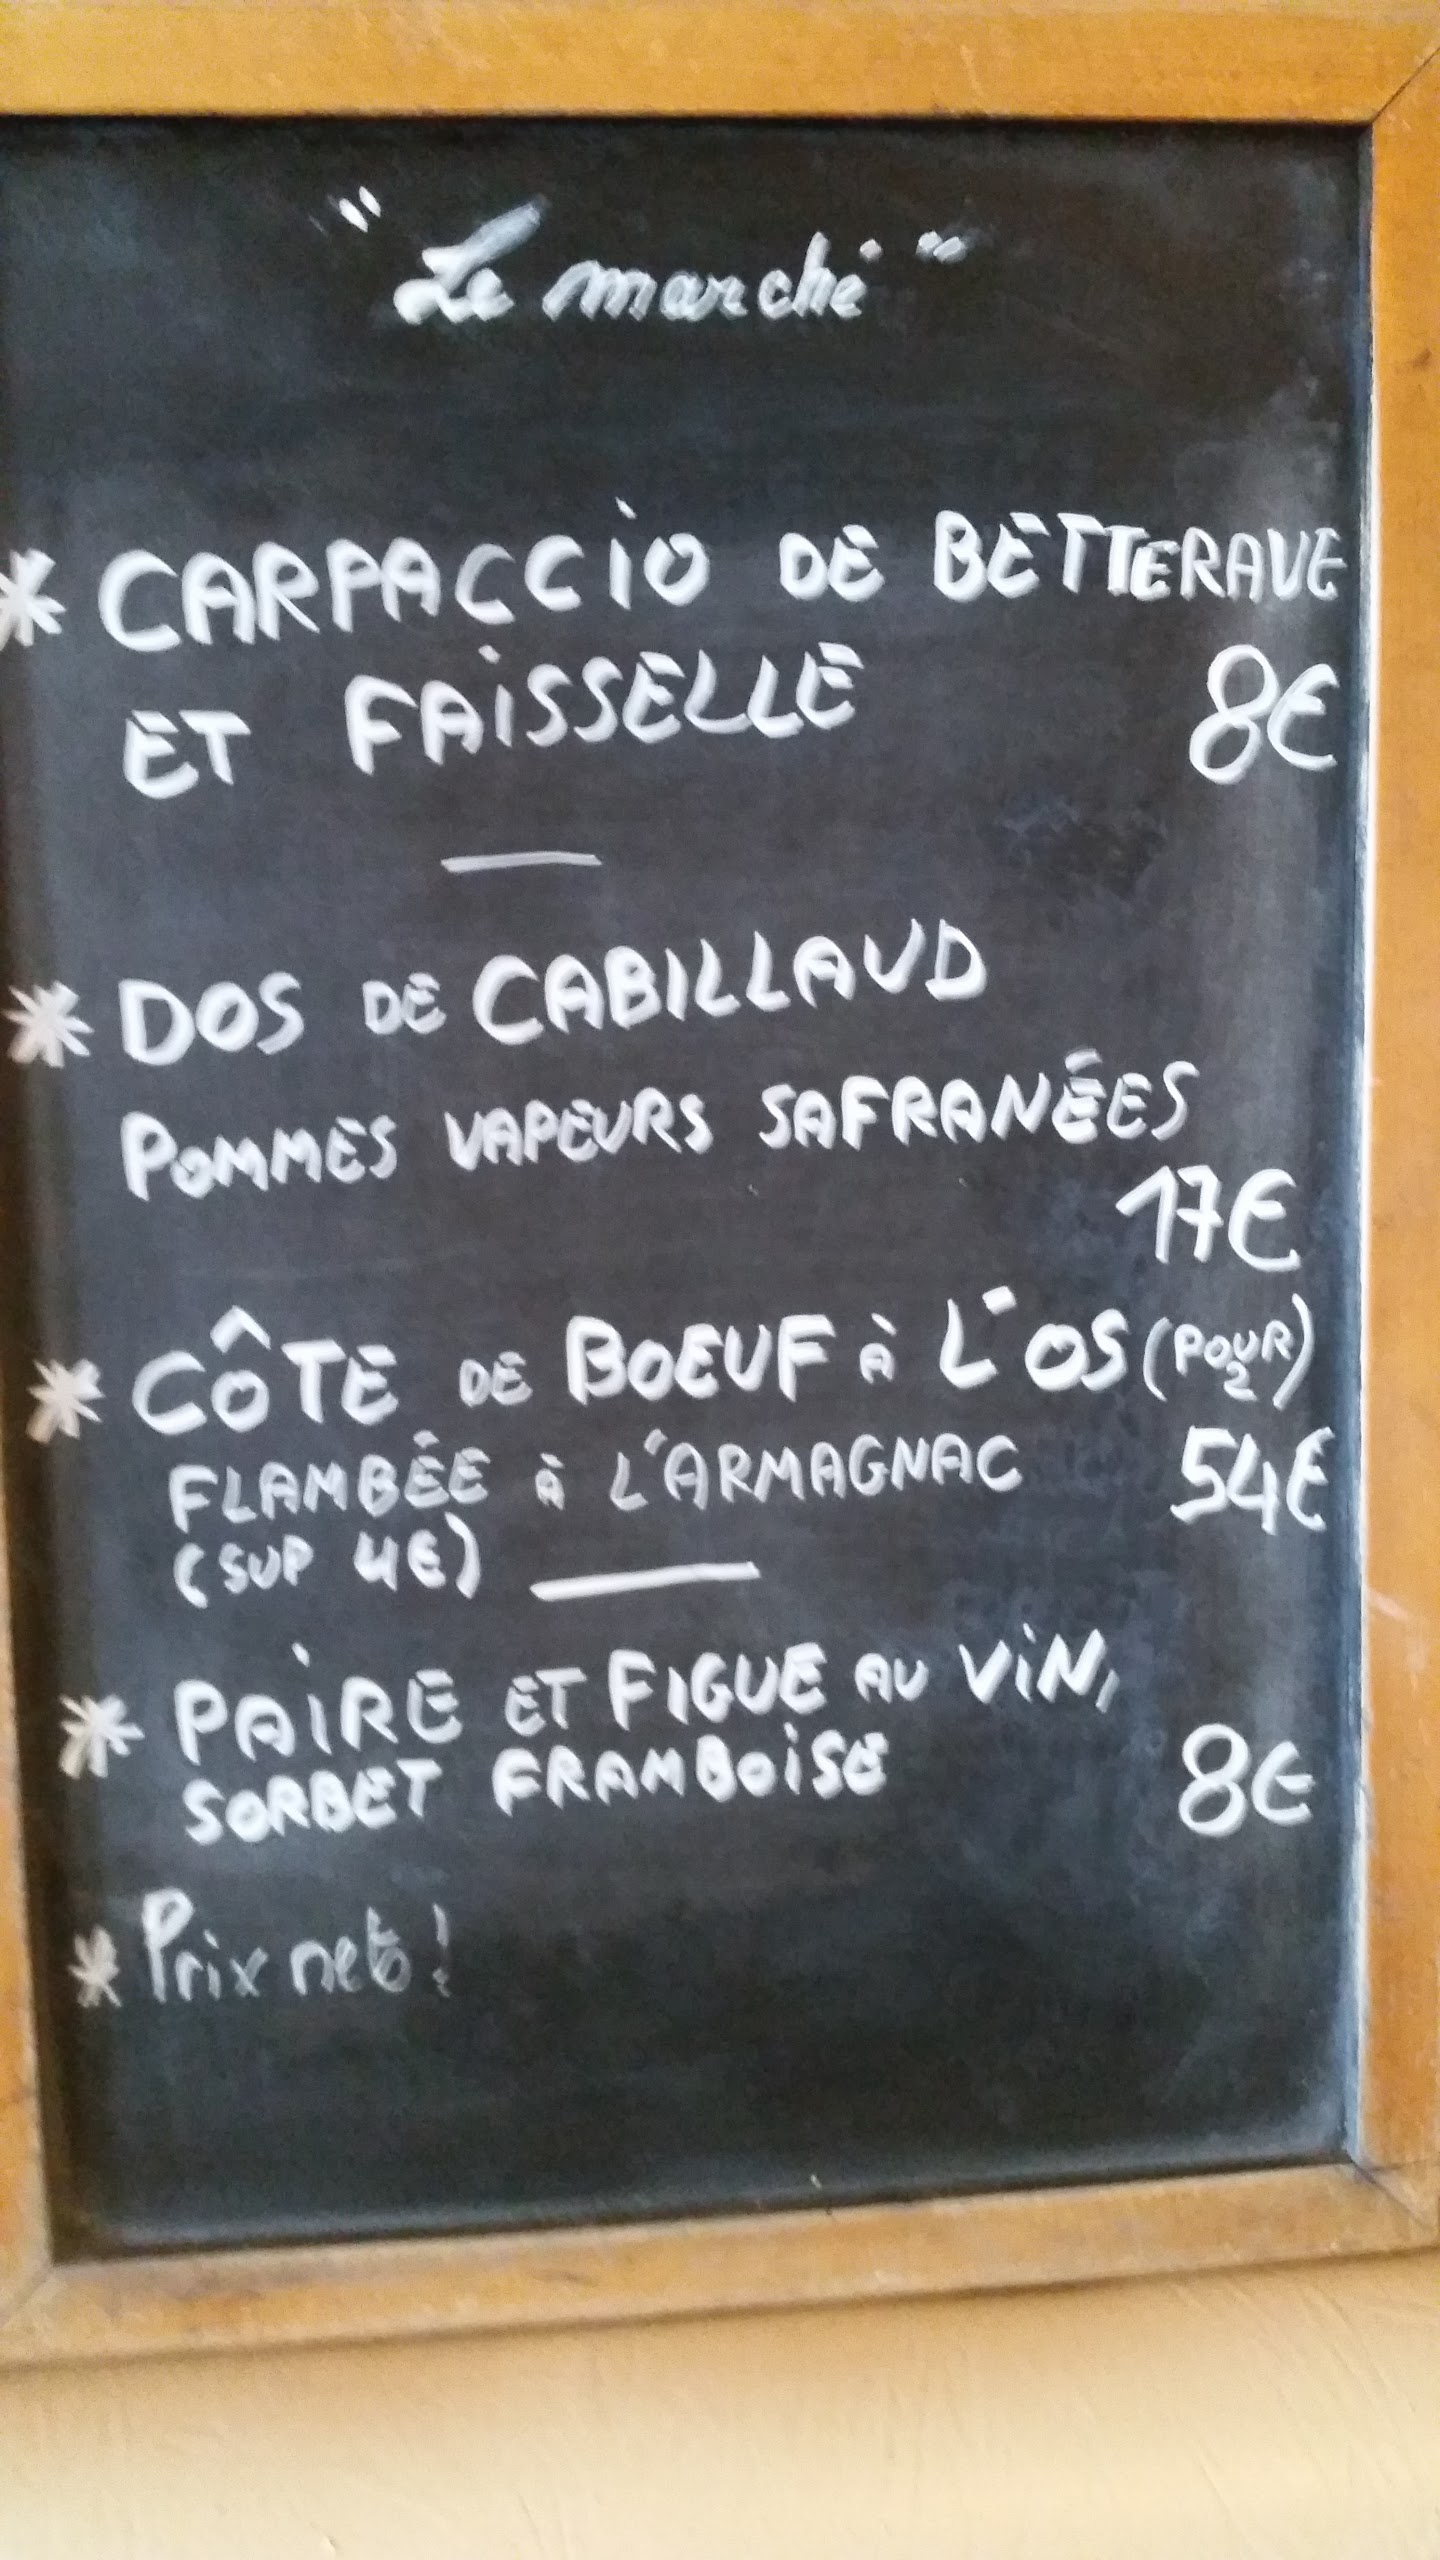 "Le marché"
* CARPACCIO DE BETTERAVE
ET FAISSELLE 8€
* DOS DE CABILLAUD
POMMES VAPEURS SAFRANÉES
17€
* CÔTE DE BOEUF À L'OS (POUR 2)
FLAMBÉE À L'ARMAGNAC 54€
(SUP 4€)
* PAIRE ET FIGUE AU VIN,
SORBET FRAMBOISE 8€
* Prix nets !